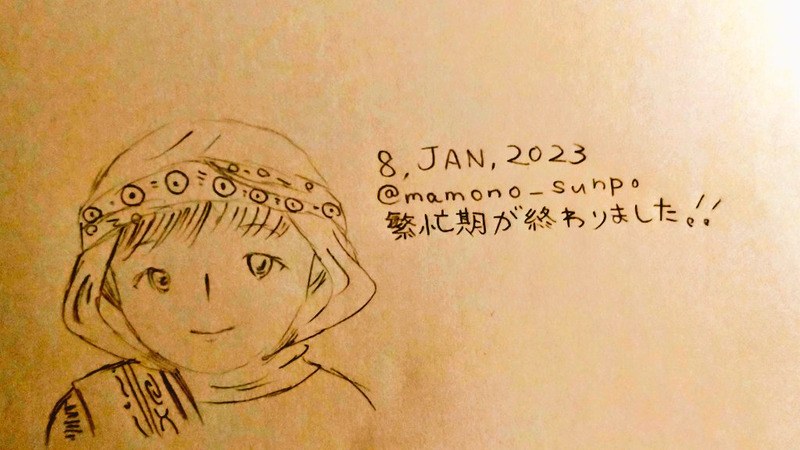 8, JAN, 2023
@mamono_sunpo
繁忙期が終わりました!!